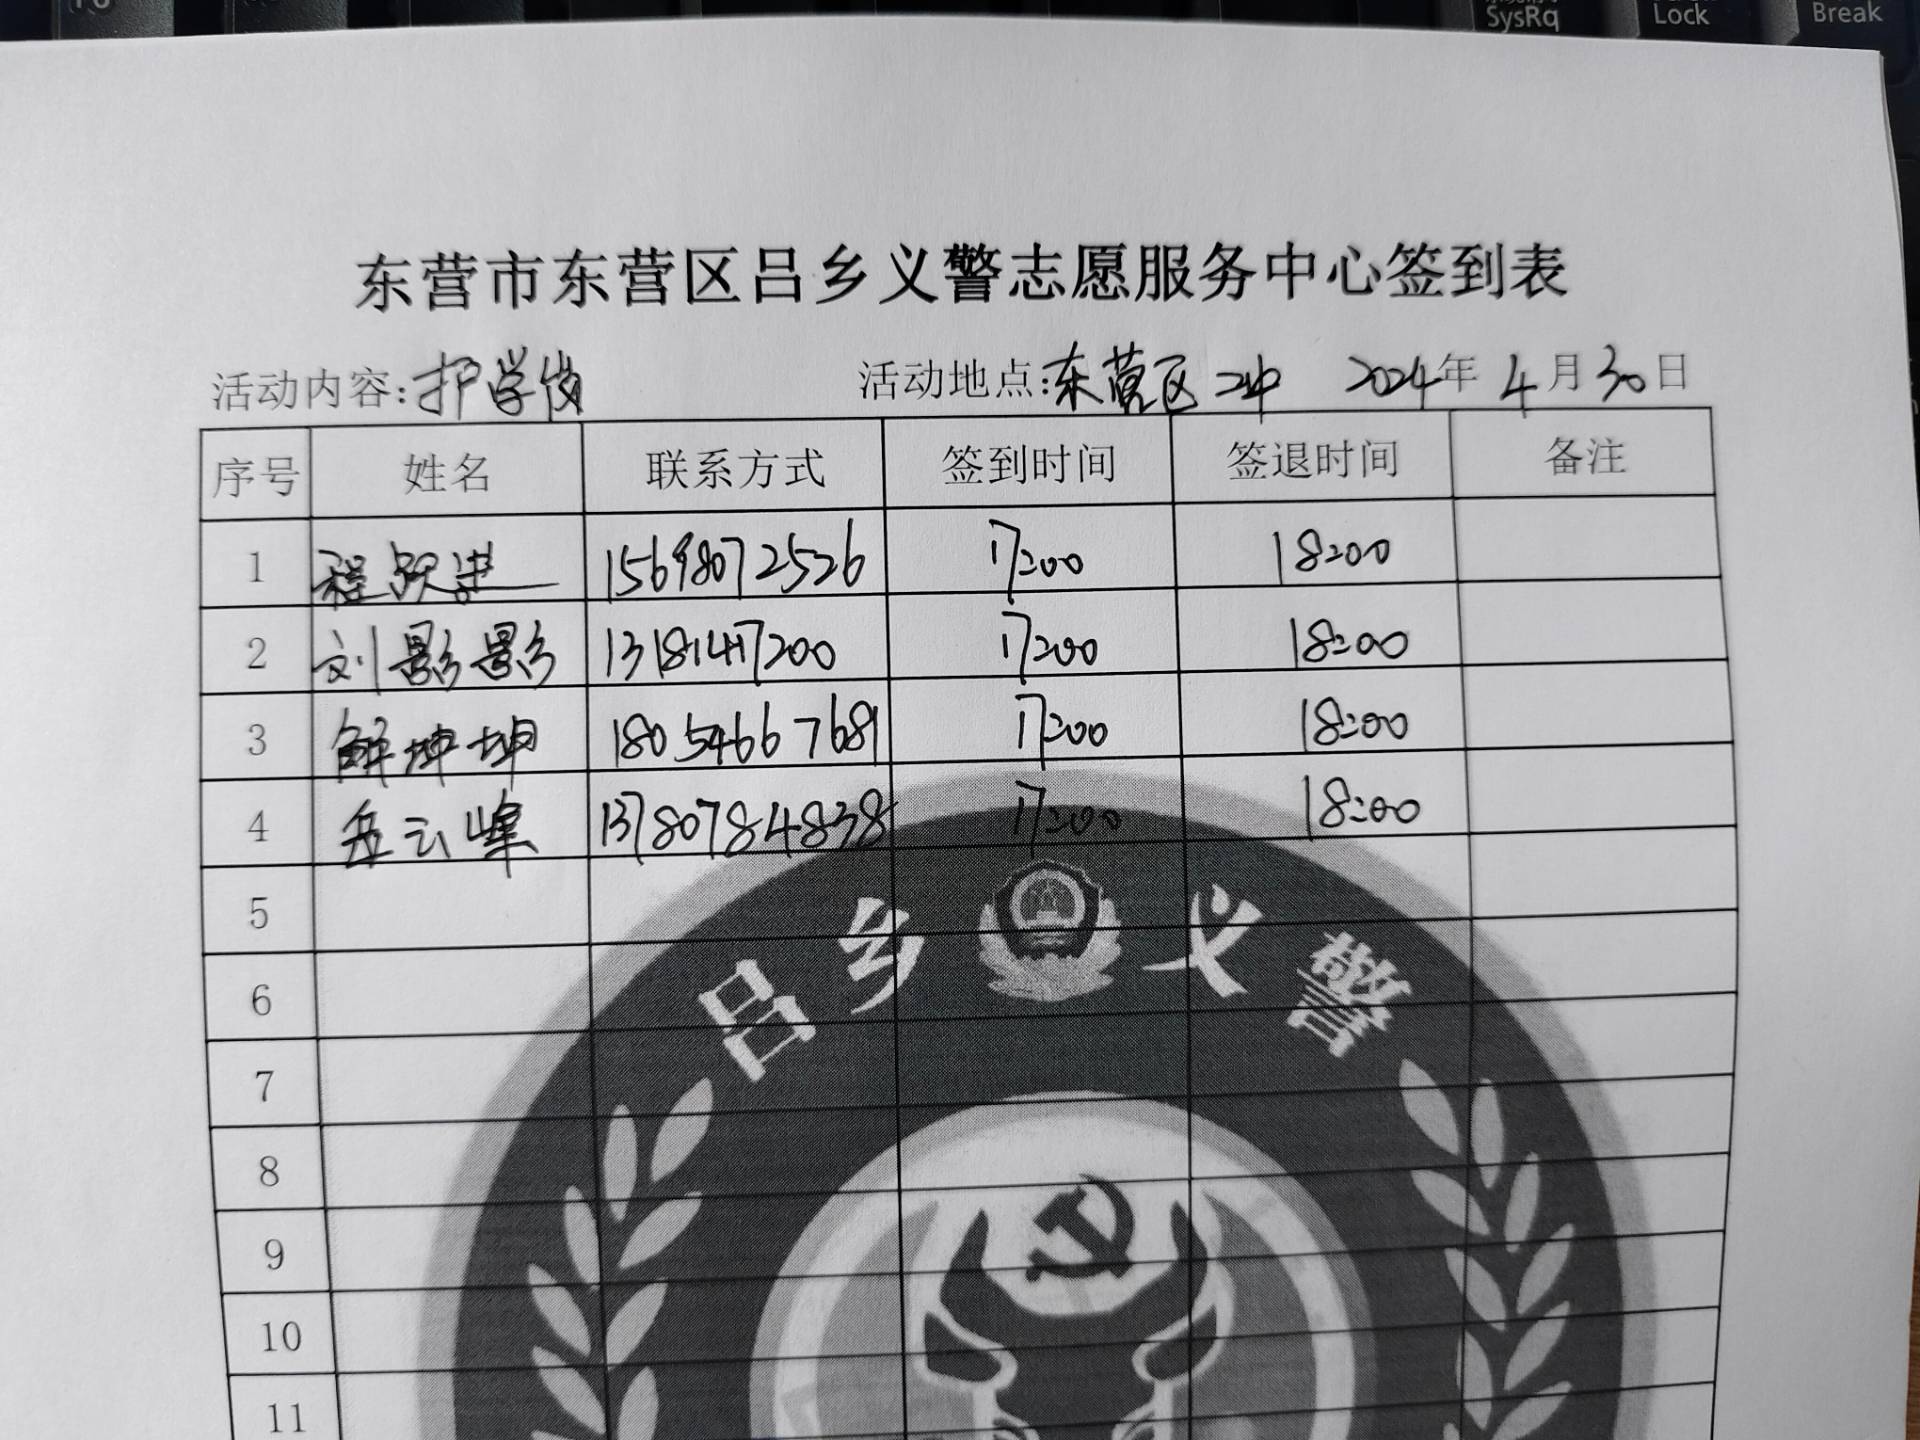 SysRq
Lock
Break
东营市东营区吕乡义警志愿服务中心签到表
活动内容:护学岗 活动地点:东营区二中 2024年 4月30日
序号 姓名 联系方式 签到时间 签退时间 备注
1 程跃进 15698072526 17:00 18:00
2 刘影影 13181417200 17:00 18:00
3 解坤坤 18054667681 17:00 18:00
4 岳云峰 13780784838 17:00 18:00
5
6
7
8
9
10
11
吕乡义警